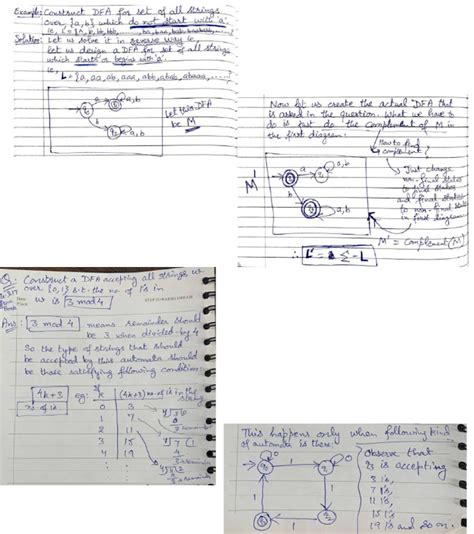 Example: Construct DFA for set of all strings
over {a, b} which do not start with 'a'.
ie, L = {Λ, b, bb, bbb, ..., ba, baa, bab,
Solution: Let us solve it in reverse way ie,
let us design a DFA for set of all strings
which starts or begins with 'a'.
ie, L = {a, aa, ab, aaa, abb, abab, abaaa, ...}
a
a, b
b
a, b
Let this DFA
be M
Now let us create the actual DFA that
is asked in the question. What we have to
do is just do the complement of M in
the first diagram.
How to find
complement?
M'
a
a, b
b
a, b
Just change
non-final states
to final states
and final states
to non-final states
in first diagram
M' = Complement(M)
Q: Construct a DFA accepting all strings w
over {0,1} s.t. the no. of 1's in
w is 3 mod 4
Ans: 3 mod 4 means remainder should
be 3 when divided by 4
So the type of strings that should
be accepted by this automata should
be those satisfying following condition:
4k+3
no. of 1's
eg:
k (4k+3) no. of 1's in the string
0 3
1 7
2 11
3 15
4 19
3 remainder
This happens only when following kind
of automata is there:
0
1
0
1
1
1
q2
Observe that
q3 is accepting
3 1's,
7 1's,
11 1's,
15 1's
19 1's and so on.